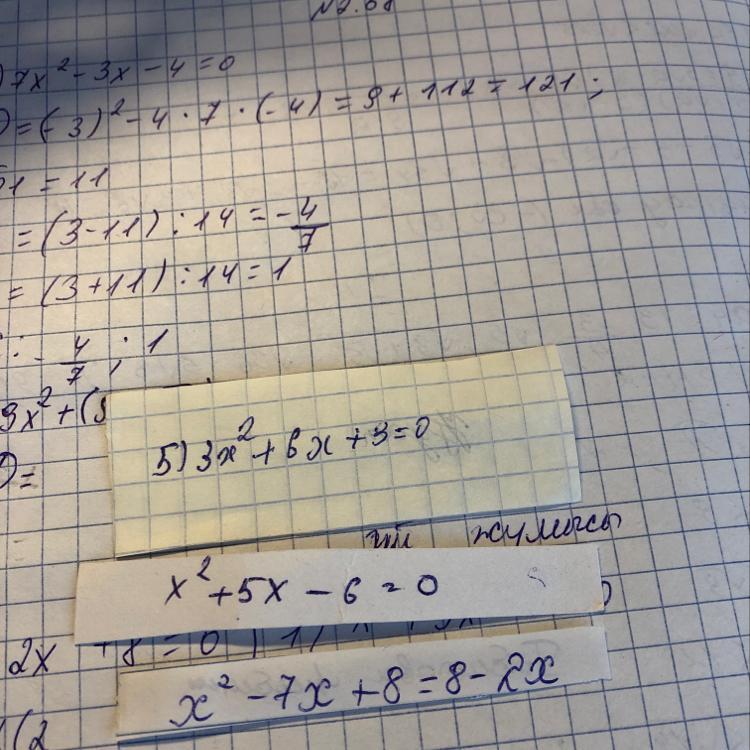 №2.08
7x² - 3x - 4 = 0
D = (-3)² - 4 · 7 · (-4) = 9 + 112 = 121;
= 11
= (3-11) : 14 = -4/7
= (3+11) : 14 = 1
: -4/7 ; 1
9x² + (
D =
5) 3x² + 6x + 3 = 0
жумысы
x² + 5x - 6 = 0
2x + 8 = 0
x² - 7x + 8 = 8 - 2x